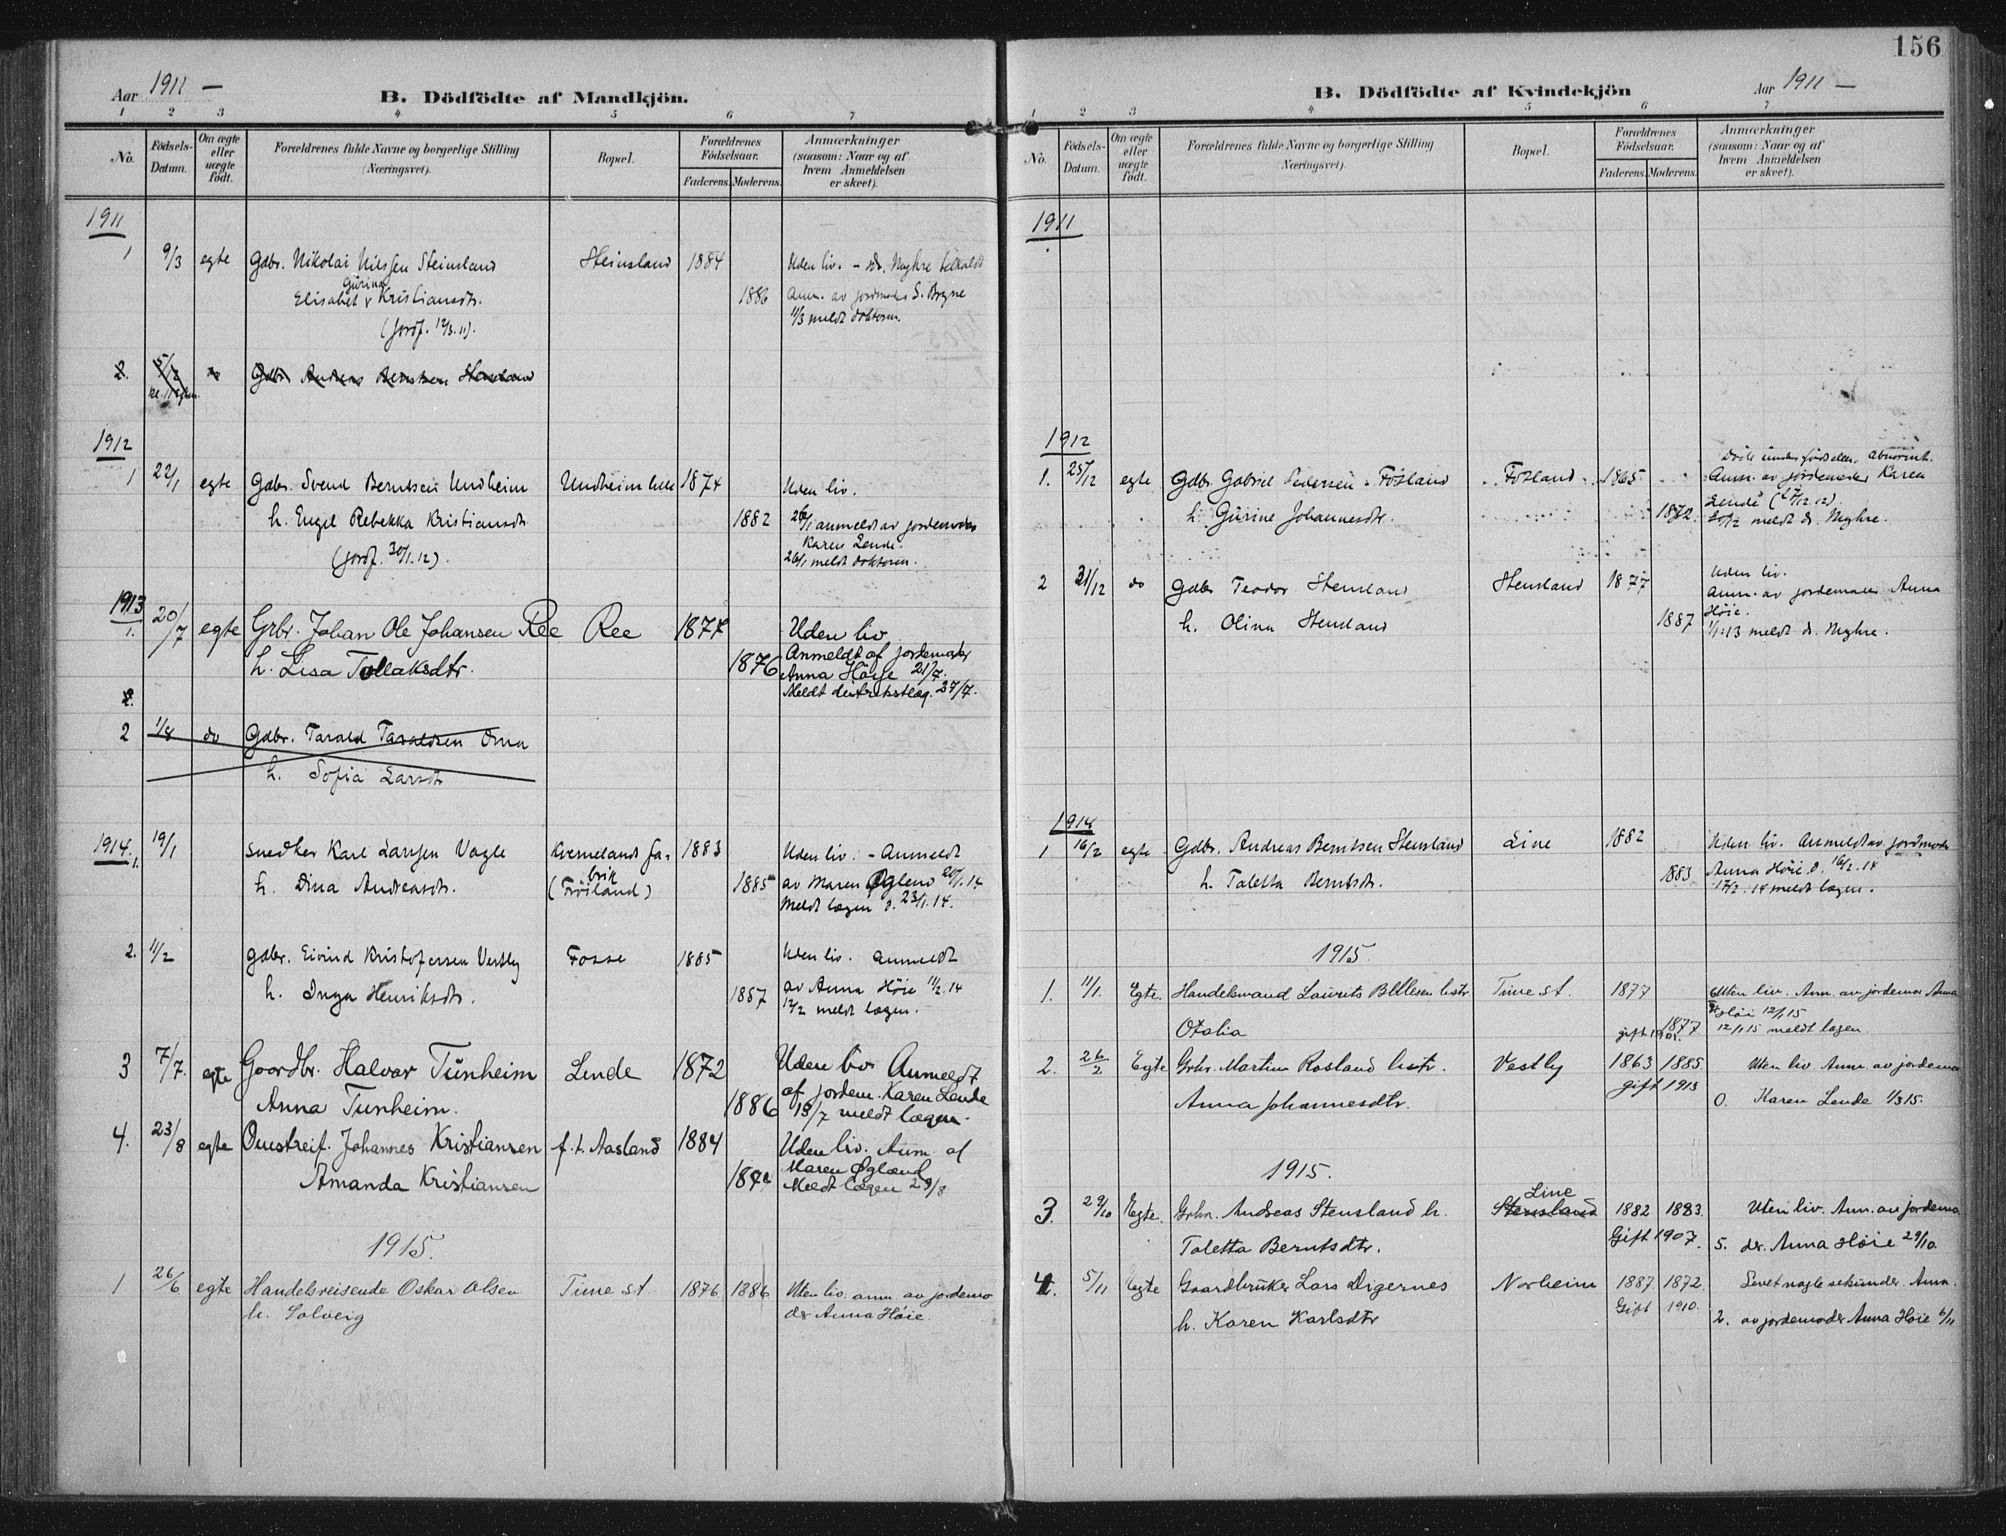 Aar 1911 —
B. Dödfödte af Mandkjön.
1 2 3 4 5 6 7
No.
Födsels-Datum.
Om ægte eller uægte født.
Forældrenes fulde Navne og borgerlige Stilling (Næringsvei).
Bopæl.
Forældrenes Födselsaar.
Faderens. Moderens.
Anmærkninger (saasom: Naar og af hvem Anmeldelsen er skeet).
1911
1 9/3 egte Gdbr. Nikolai Nilssen Steinsland Steinsland 1884 Uden liv. – dr. Myhre tilkaldt
Gurina
Elisabet v Kristiansdtr. 1886 Anm. av jordmoder S. Bryne
(jordf. 12/3.11). 11/3 meldt doktoren.
2. 5/12 do Gdbr Andreas Berntsen Stensland
1912
1 22/1 egte Gdbr. Svend Berntsen Undheim Undheim lille 1874 Uden liv.
h. Engel Rebekka Kristiansdtr 1882 26/1 anmeldt av jordemoder
Karen Lende.
(jordf. 30/1.12). 26/1 meldt doktoren.
1913
1. 20/7 egte Grbr. Johan Ole Johansen Ree Ree 1877 Uden liv
h. Lisa Tollaksdtr. 1876 Anmeldt af jordemoder
Anna Höije 21/7.
Meldt distriktslæg. 27/7.
2.
2 1/8 do Gdbr. Tarald Taraldsen Oma
h. Sofia Larsdtr
1914.
1. 19/1 snedker Karl Larssen Vagle Kvernelands fa-brik 1883 Uden liv. – Anmeldt
h. Dina Andreasdtr. (Frøiland) 1885 av Maren Øglend 20/1.14
Meldt lægen d. 23/1.14.
2. 11/2 gdbr. Eivind Kristofersen Vestly Fosse 1885 Uden liv. anmeldt
h. Inga Henriksdtr. 1887 av Anna Høie 11/2.14
12/2 meldt lægen.
3 7/7. egte Goardbr. Halvor Tunheim Lende 1872 Uden liv Anmeldt
Anna Tunheim. 1886 af jordem. Karen Lende
15/7 meldt lægen.
4. 23/8 egte Omstreif. Johannes Kristiansen f.t. Aasland 1884 Uden liv. Anm. af
Amanda Kristiansen Maren Øglænd
Meldt lægen 29/8
1915.
1 26/6 egte Handelsreisende Oskar Olsen Time st. 1876 1886 Uten liv. anm. av jordemo
h. Solveig der Anna Høie.
156
B. Dödfödte af Kvindekjön
Aar 1911 —
1 2 3 4 5 6 7
No.
Födsels-Datum.
Om ægte eller uægte födt.
Forældrenes fulde Navne og borgerlige Stilling (Næringsvei).
Bopæl.
Forældrenes Födselsaar.
Faderens. Moderens.
Anmærkninger (saasom: Naar og af hvem Anmeldelsen er skeet).
1911
1912
Døde under fødselen. abnormt.
1. 25/12 egte Gdbr. Gabriel Pedersen Fosland Fosland 1865 Anm. av jordemoder Karen
h. Gurine Johannesdtr. 1872. Lende (27/12.12).
30/12 meldt dr. Myhre.
2 31/12 do Gdbr Teodor Stensland Stensland 1877 Uden liv.
h. Olina Stensland 1887 Anm. av jordemoder Anna
Høie.
1/1.13 meldt dr. Myhre.
1914
1 16/2 egte Gdbr. Andreas Berntsen Stensland Line 1882 Uden liv. Anmeldt av jordmoder
h. Taletta Berntsdtr. 1883 Anna Høie d. 16/2.14
17/2.14 meldt lægen.
1915.
1. 11/1. Egte. Handelsmand Laurits hustr Time st. 1877 Uten liv. Anm. av jordemor Anna
Otalia 1877 Høie 12/1 15
12/1.15 meldt lægen.
2. 26/2 Egte Grbr. Martin Rosland hustr. Vestly 1863 1885 Uten liv Anm. av jordemor
Anna Johannesdtr. gift 1913 0. Karen Lende 1/3 15.
1915.
3. 29/10 Egte. Grbr. Andreas Stensland h. Line Stensland 1882 1883. Uten liv. Anm. av jordemo
Taletta Berntsdtr. Gift 1907. 5. der. Anna Høie 29/10.
4. 5/11 Egte Gaardbruker Lars Digernes Norheim 1887. 1872. Levet nogle sekunder. Anm.
h. Karen Karlsdtr Gift 1910. 2. av jordemoder Anna Høie 6/11